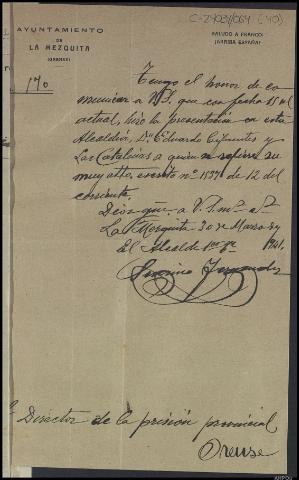 C-24031/064 (40)
AYUNTAMIENTO
DE
LA MEZQUITA
(ORENSE)
SALUDO A FRANCO!
¡ARRIBA ESPAÑA!
190
Tengo el honor de co-
municar a V.S. que con fecha 15 del
actual, hizo la presentación en esta
Alcaldía, Dn Eduardo Cifuentes y
Las Catalinas a quien se refiere su
muy atto. escrito nº 1534 de 12 del
corriente.
Dios gue. a V.S. ms. as.
La Mezquita 30 de Marzo de
El Alcalde 1941.
Fernandez
Director de la prisión provincial
Orense